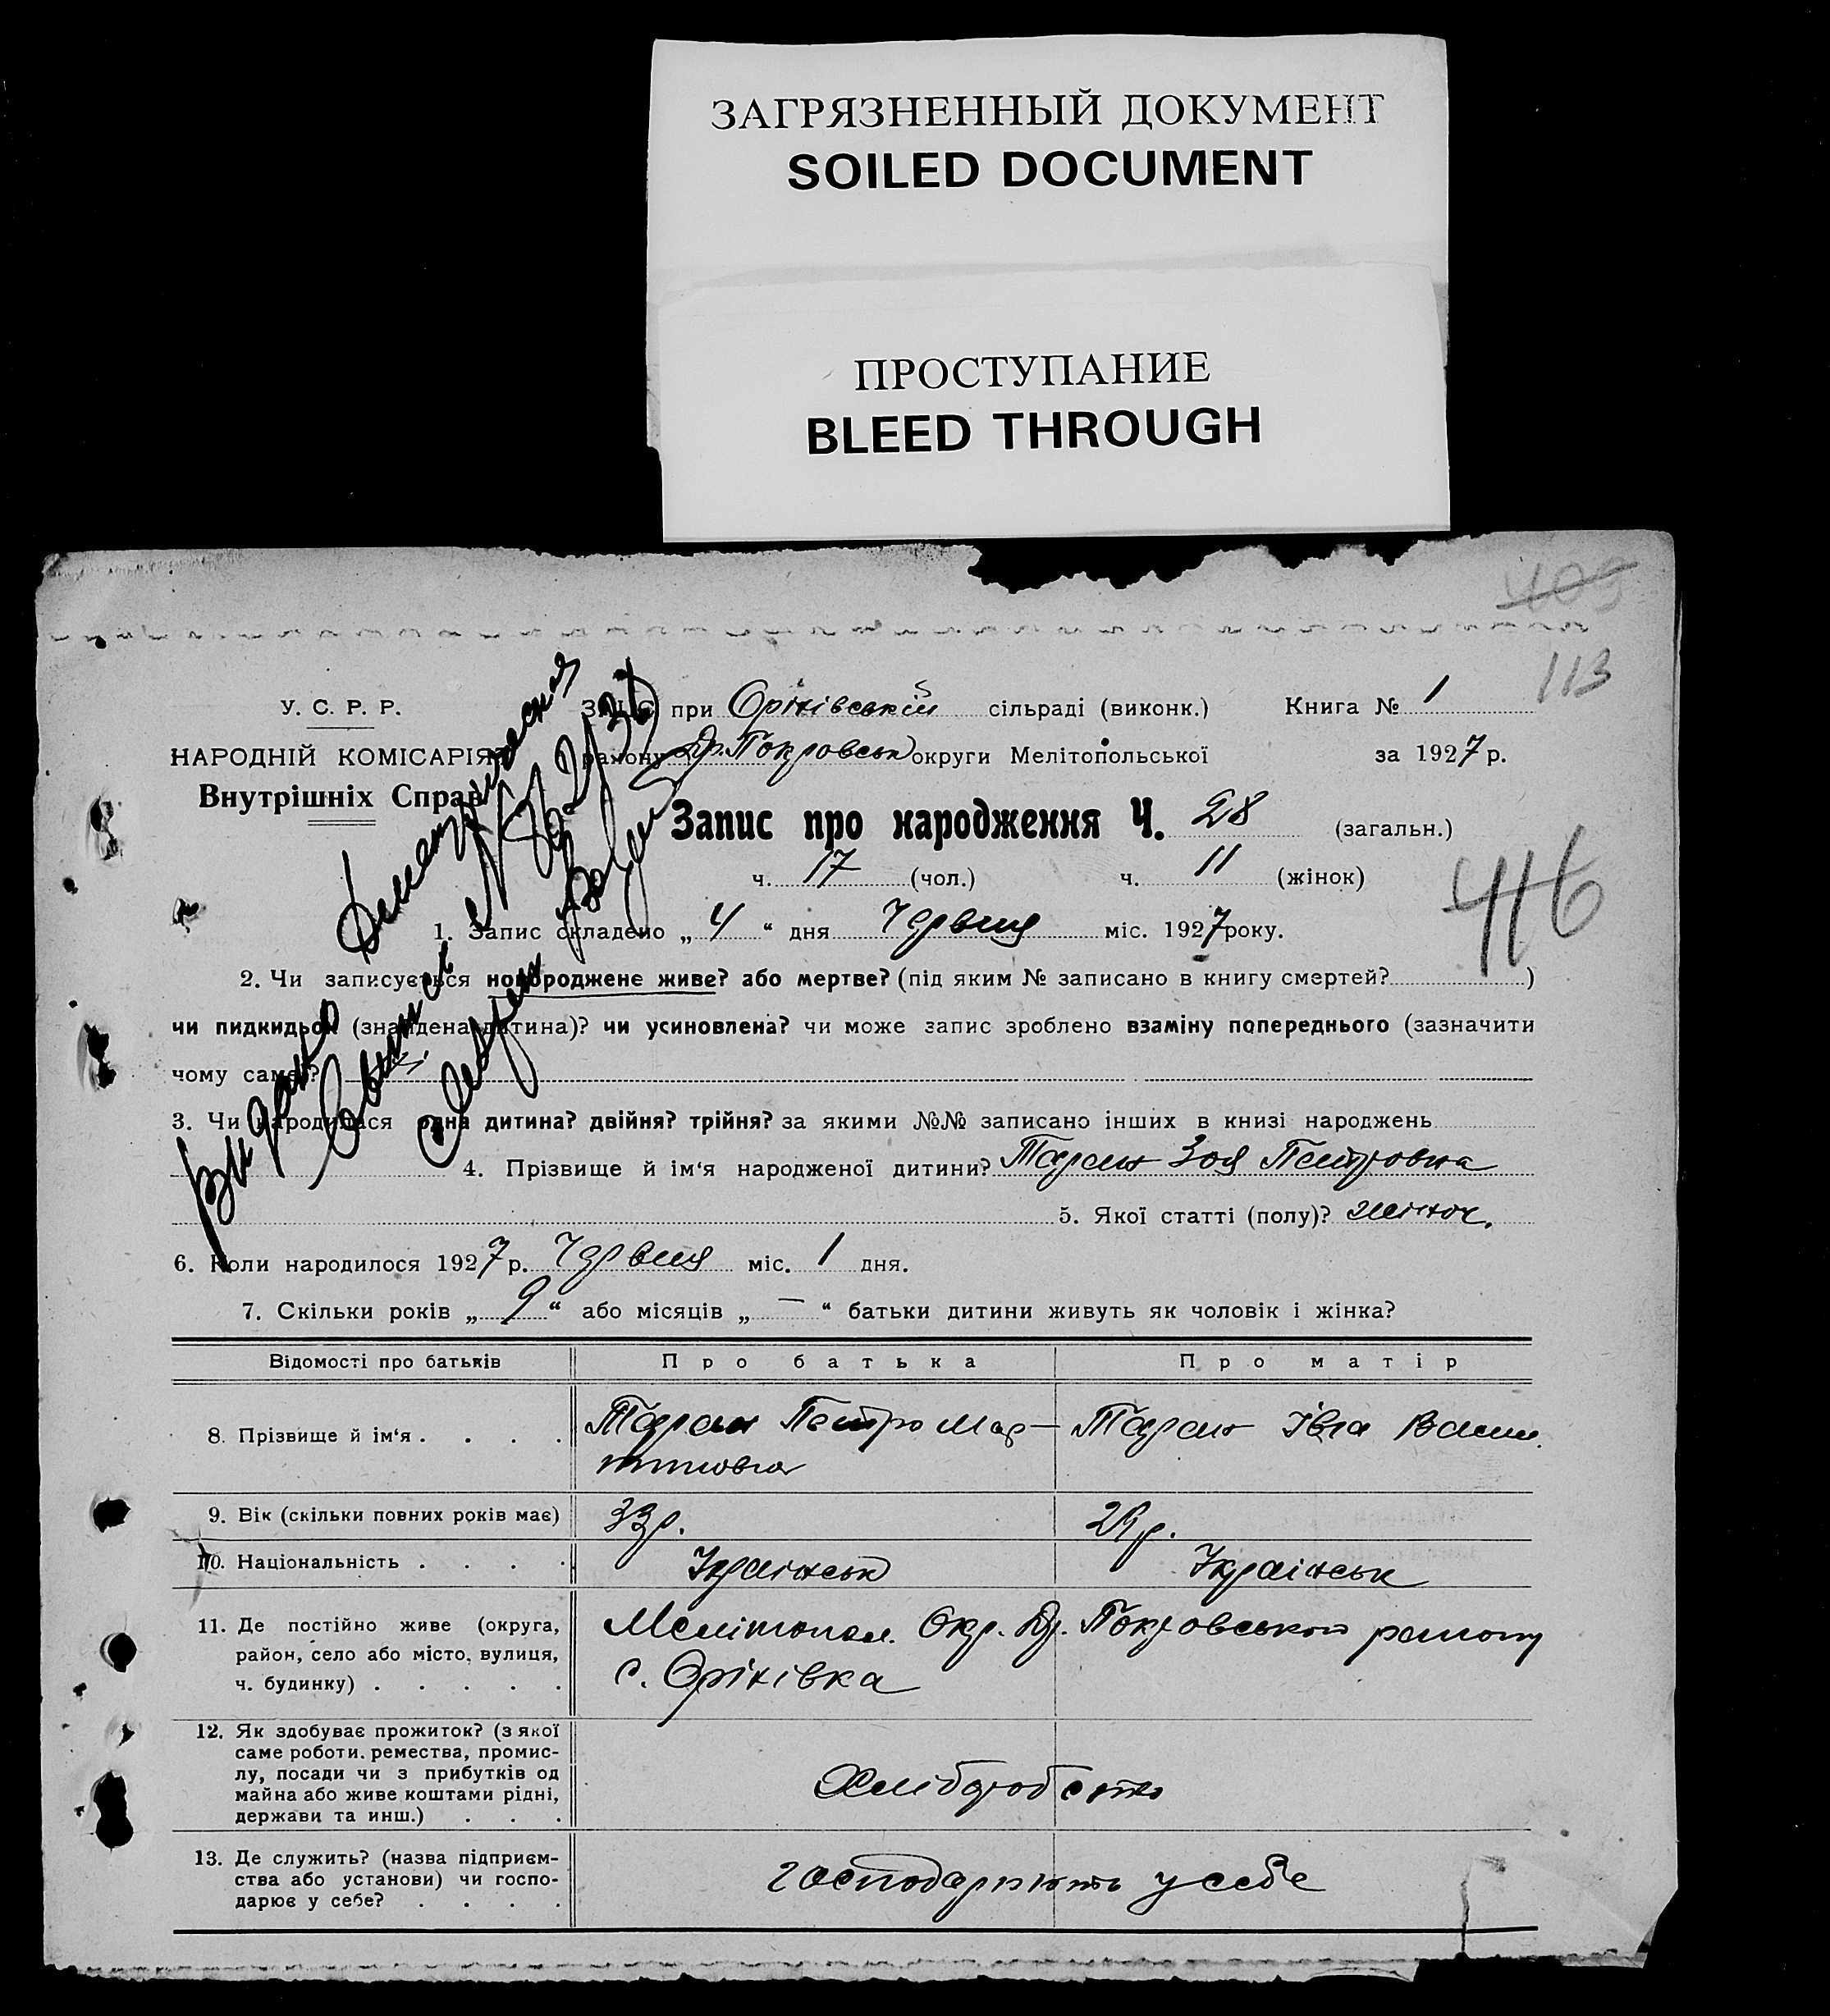 ЗАГРЯЗНЕННЫЙ ДОКУМЕНТ
SOILED DOCUMENT
ПРОСТУПАНИЕ
BLEED THROUGH
409
113
У. С. Р. Р.
НАРОДНІЙ КОМІСАРІЯТ
Внутрішніх Справ
ЗАГС при Орлівській сільраді (виконк.) Книга № 1
району Др. Покровськ округи Мелітопольської за 1927 р.
Запис про народження Ч. 28 (загальн.)
ч. 17 (чол.) ч. 11 (жінок)
416
1. Запис складено „ 4 “ дня Червня міс. 1927 року.
2. Чи записується новороджене живе? або мертве? (під яким № записано в книгу смертей? )
чи пидкидьок (знайдена дитина)? чи усиновлена? чи може запис зроблено взаміну попереднього (зазначити
чому саме)?
3. Чи народилася одна дитина? двійня? трійня? за якими №№ записано інших в книзі народжень
4. Прізвище й ім‘я народженої дитини? Таран Зоя Петровна
5. Якої статті (полу)? жіноч.
6. Коли народилося 1927 р. Червня міс. 1 дня.
7. Скільки років „ 9 “ або місяців „ — “ батьки дитини живуть як чоловік і жінка?
Відомості про батьків Про батька Про матір
8. Прізвище й ім‘я . . . . Таран Петро Мар- Таран Івга Васил.
тинович
9. Вік (скільки повних років має) 33 р. 29 р.
10. Національність . . . . Українськ Українськ
11. Де постійно живе (округа,
район, село або місто, вулиця,
ч. будинку) . . . . .
Мелітопол. Окр. Др. Покровського району
с. Орлівка
12. Як здобуває прожиток? (з якої
саме роботи, ремества, промис-
лу, посади чи з прибутків од
майна або живе коштами рідні,
держави та инш.) . . .
Хліборобство
13. Де служить? (назва підприєм-
ства або установи) чи госпо-
дарює у себе? . . . .
господарюють у себе
Видано